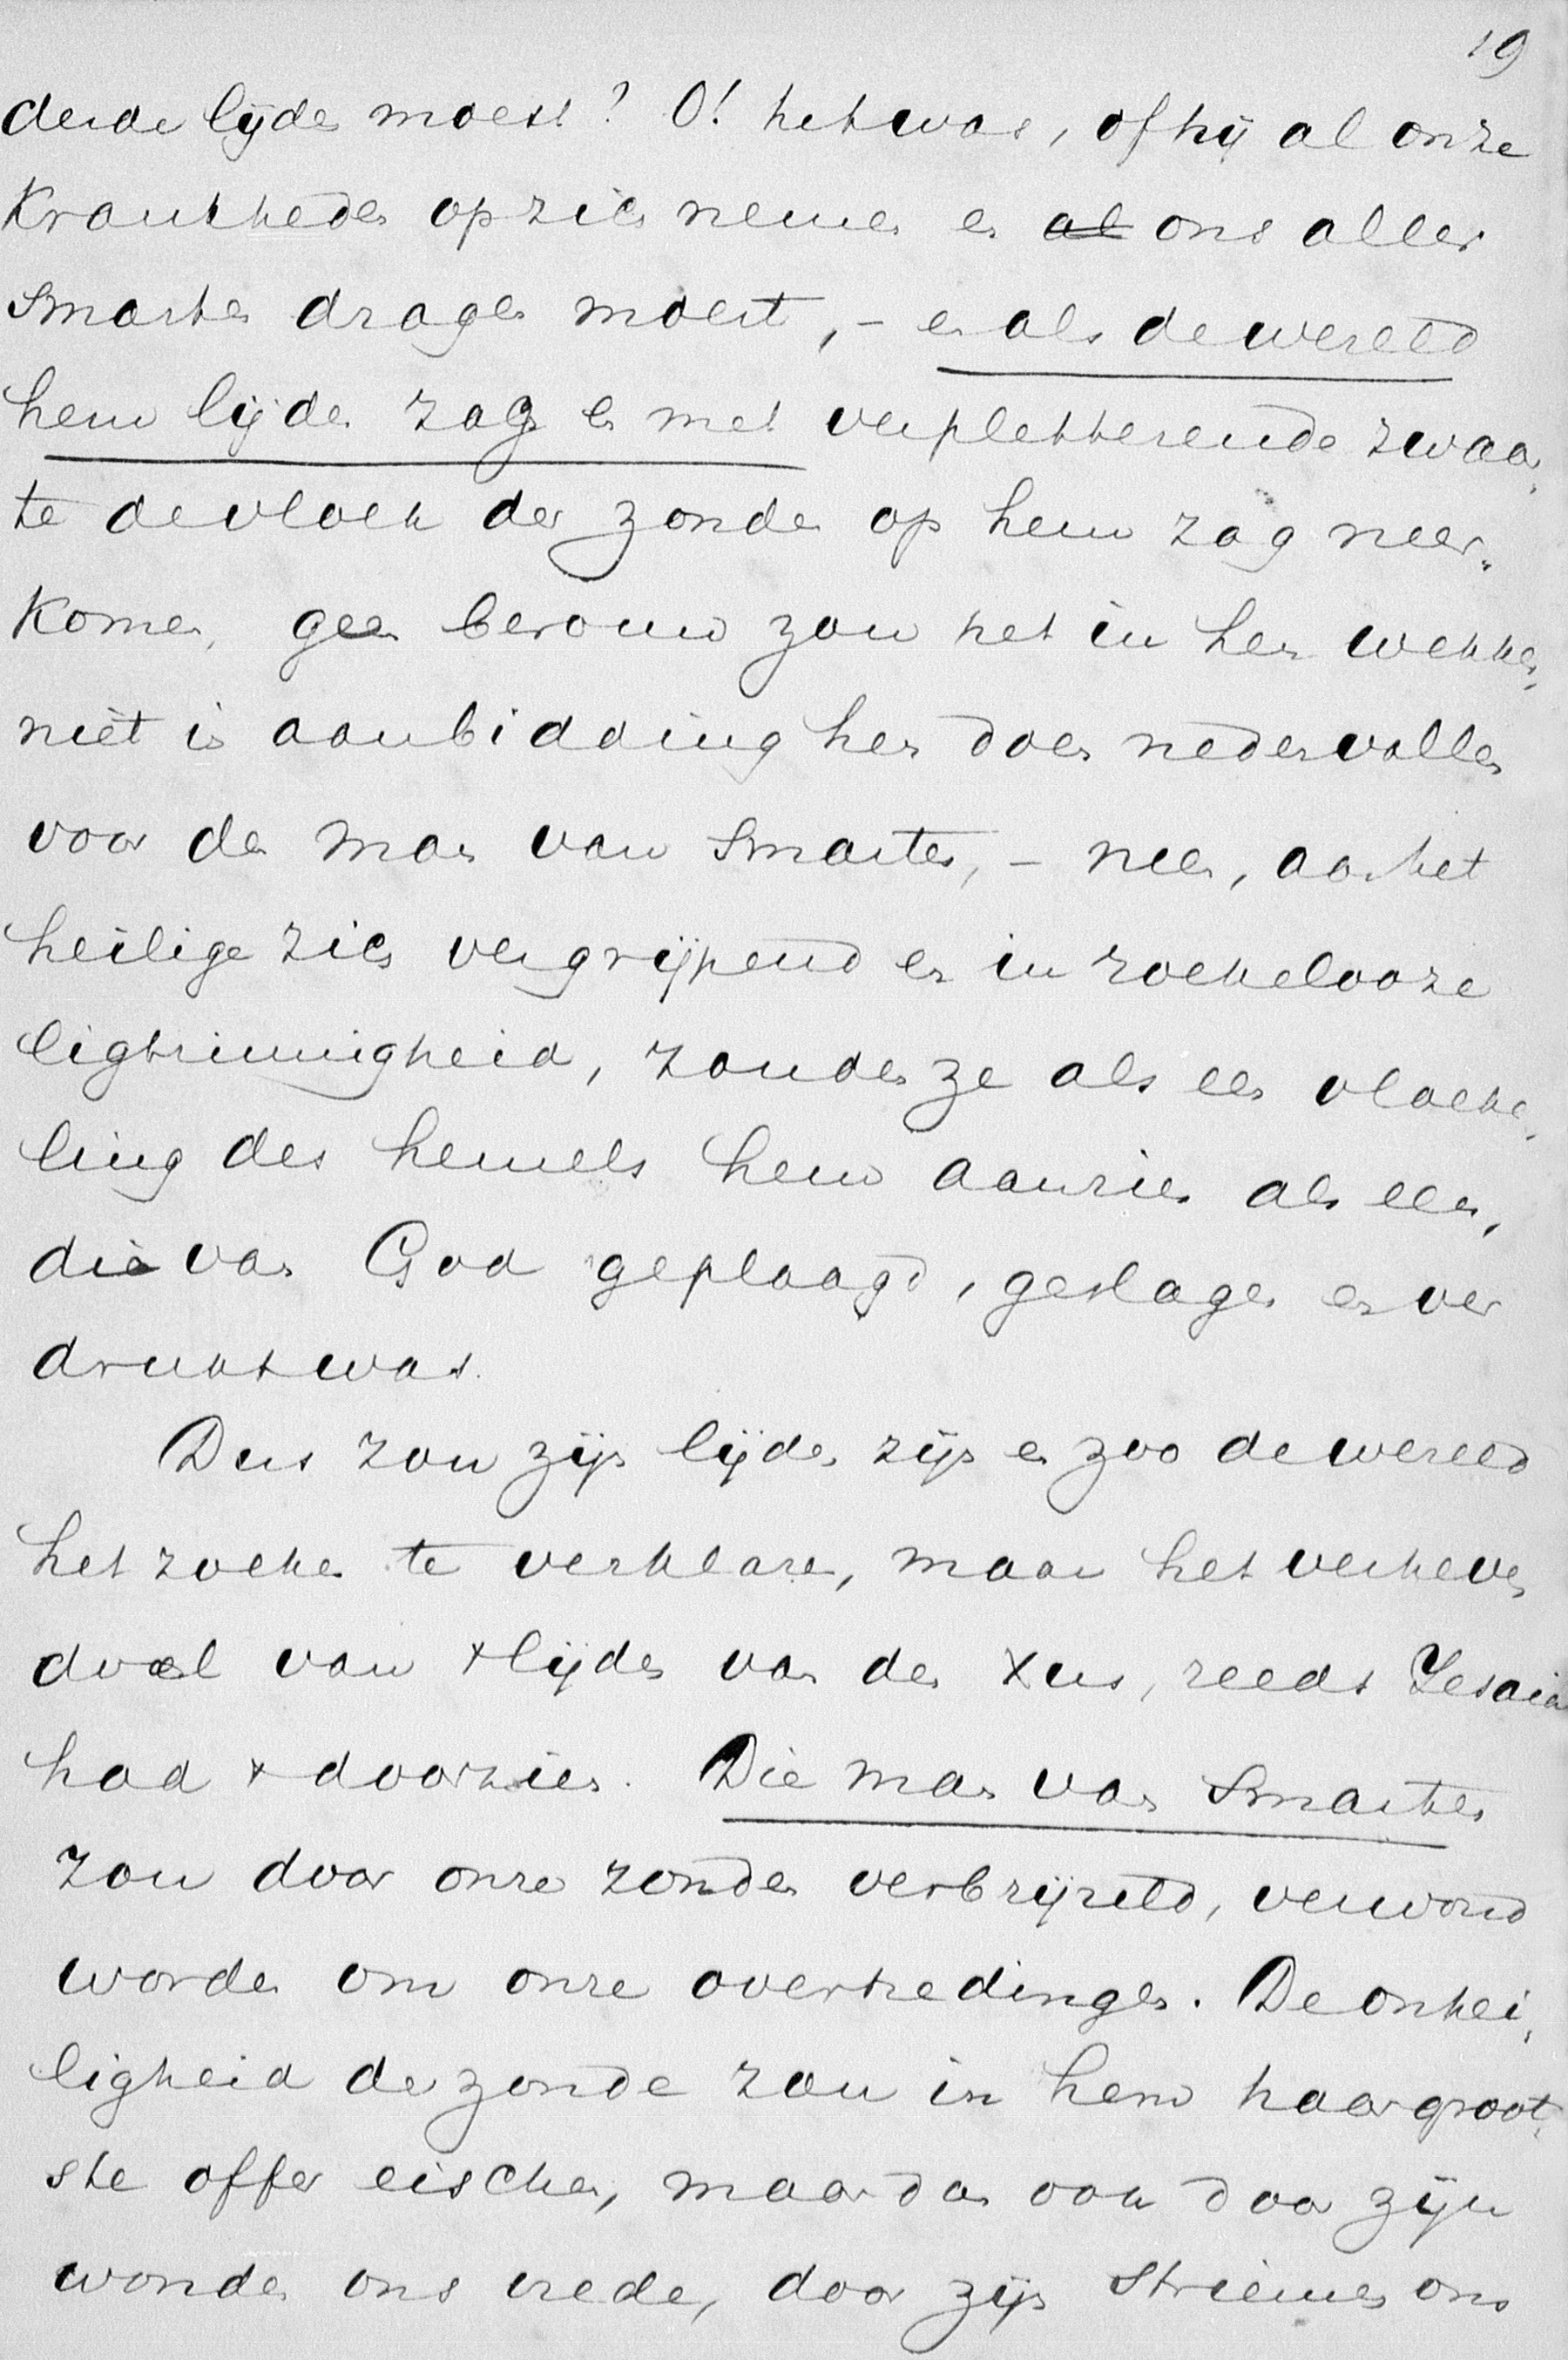 19
deide lijden moest? O! het was, of hij al onze
Krankheden op zich nemen en ~~al~~ ons aller
smarten dragen moest, – en als de wereld
hem lijden zag en met verpletterende zwaar-
te de vloek der zonden op hem zag neer-
komen, geen berouw zou het in hen wekken,
niet in aanbidding hen doen nedervallen
voor den man van smarten, – neen, aan het
heilige zich vergrijpend en in roekelooze
ligtzinnigheid, zouden ze als een vloeke-
ling des hemels hem aanzien als een,
die van God geplaagd, geslagen en ver
drukt was.
Dus zou zijn lijden zijn en zoo de wereld
het zoeken te verklaren, maar het verheven
doel van x lijden van den Xus, reeds Jesaia
had x doorzien. Die man van smarten
zou door onze zonden verbrijzeld, verwond
worden om onze overtredingen. De onhei-
ligheid der zonde zou in hem haar groot-
ste offer eischen, maar dan ook door zijn
wonden ons vrede, door zijn striemen ons